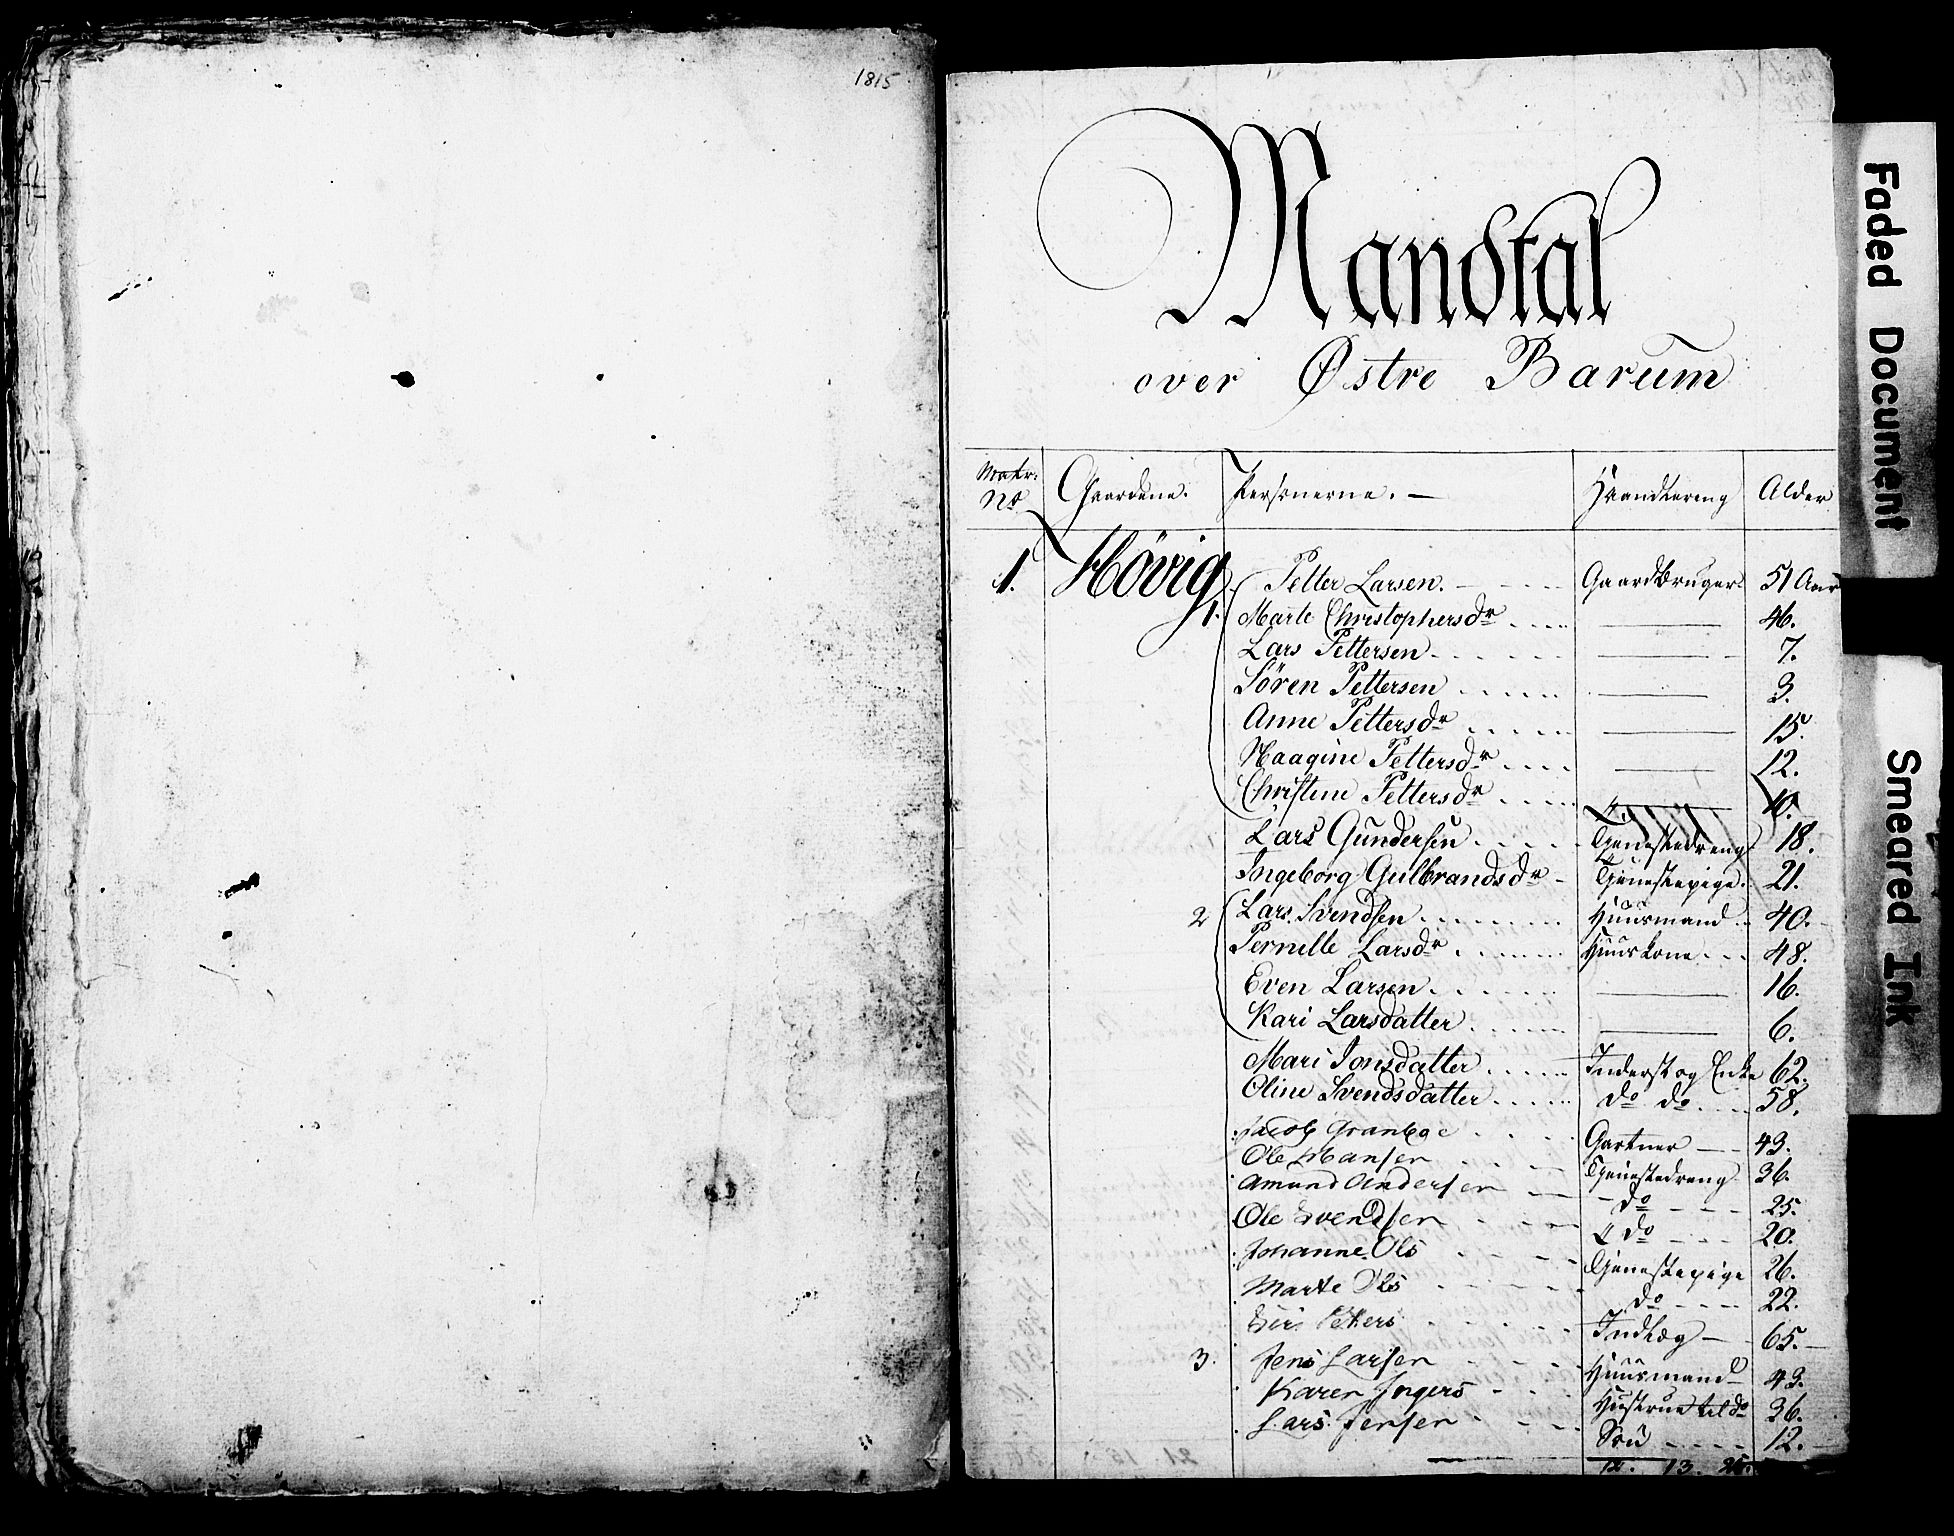 1815
Mandtal
over Østre Barum
Matr: No Gaardene. Personerne. Haandtering Alder
1. Hövig 1. Petter Larsen. Gaardbruger 51 Aar
Marte Christophersdr 46.
Lars Pettersen 7.
Sören Pettersen 3.
Anne Pettersdr 15.
Haagine Pettersdr 12.
Christine Pettersdr 10.
Lars Gundersen Tjenestedreng 18.
Ingeborg Gulbrandsdr Tjenestepige. 21.
2 Lars Svendsen Huusmand 40.
Pernille Larsdr Huuskone 48.
Even Larsen 16.
Kari Larsdatter 6.
Mari Jonsdatter Inderst og Enke 62.
Oline Svendsdatter do do 58.
Jacob Gartner 43.
Ole Hansen Tjenestedreng 36.
Amund Andersen do 25.
Ole Svendsen do 20.
Johanne Ols Tjenestepige 26.
Marte Ols do 22.
Siri Petters Indlæg 65.
3. Jens Larsen Huusmand 43.
Karen Ingers Hustrue til do 36.
Lars Jensen Søn 12.
12. 13. 25.
Faded Document
Smeared Ink